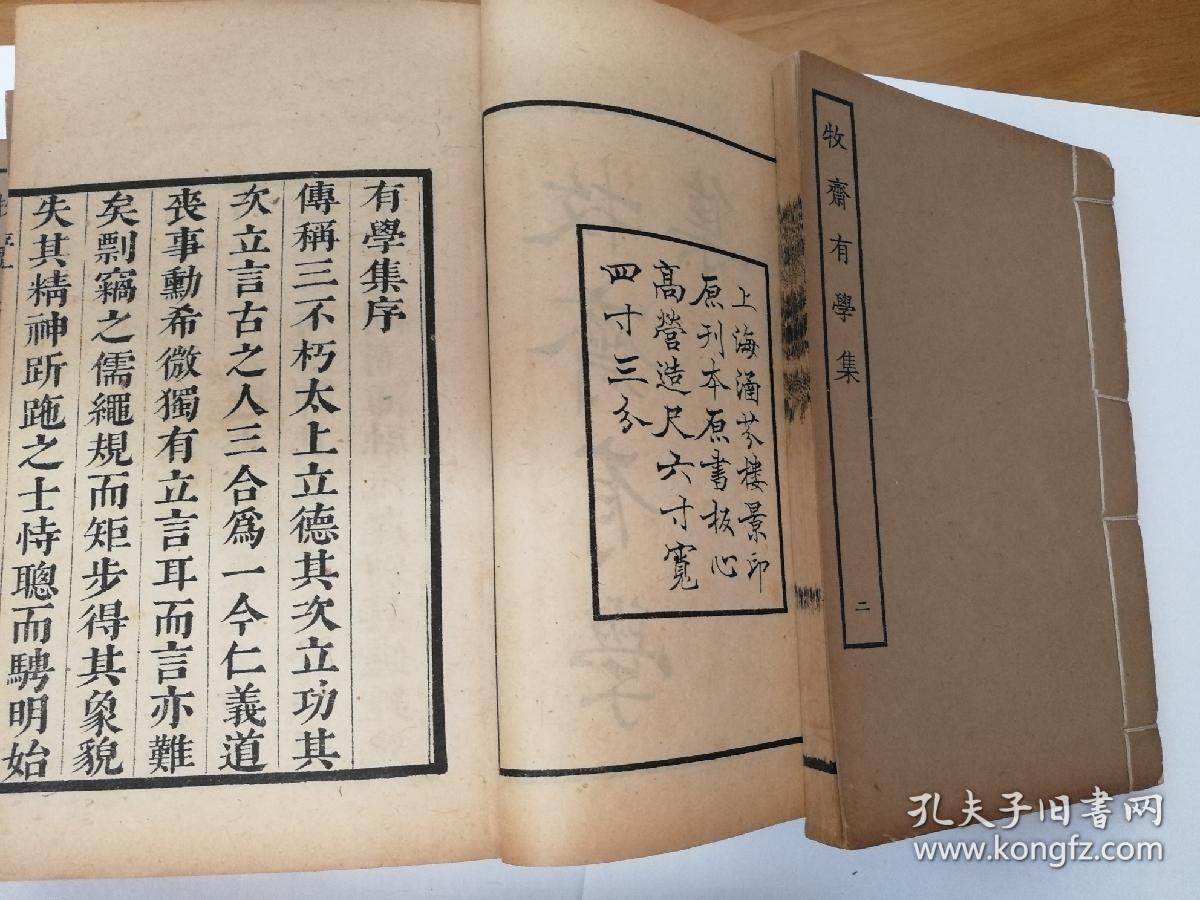 牧齋有學集
二
上海涵芬樓景印
原刊本原書板心
高營造尺六寸寬
四寸三分
有學集序
傳稱三不朽太上立德其次立功其
次立言古之人三合爲一今仁義道
喪事勳希微獨有立言耳而言亦難
矣剽竊之儒繩規而矩步得其象貌
失其精神斫跑之士恃聰而騁明始
孔夫子旧书网
www.kongfz.com